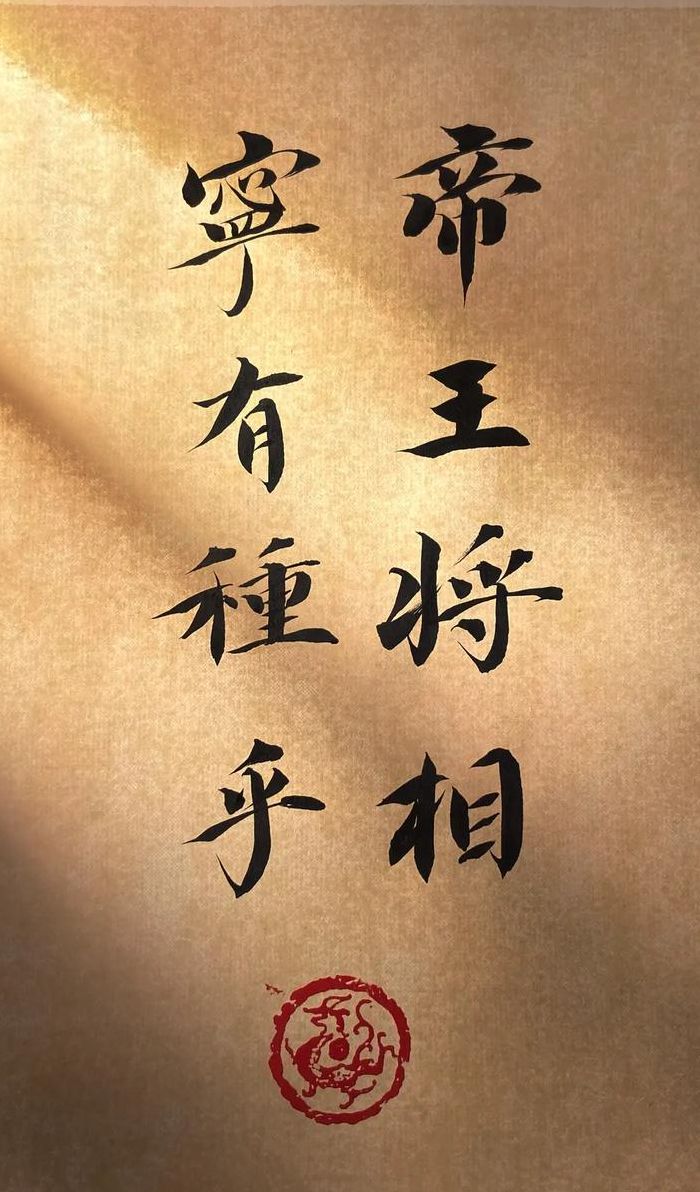 帝王将相
寧有種乎